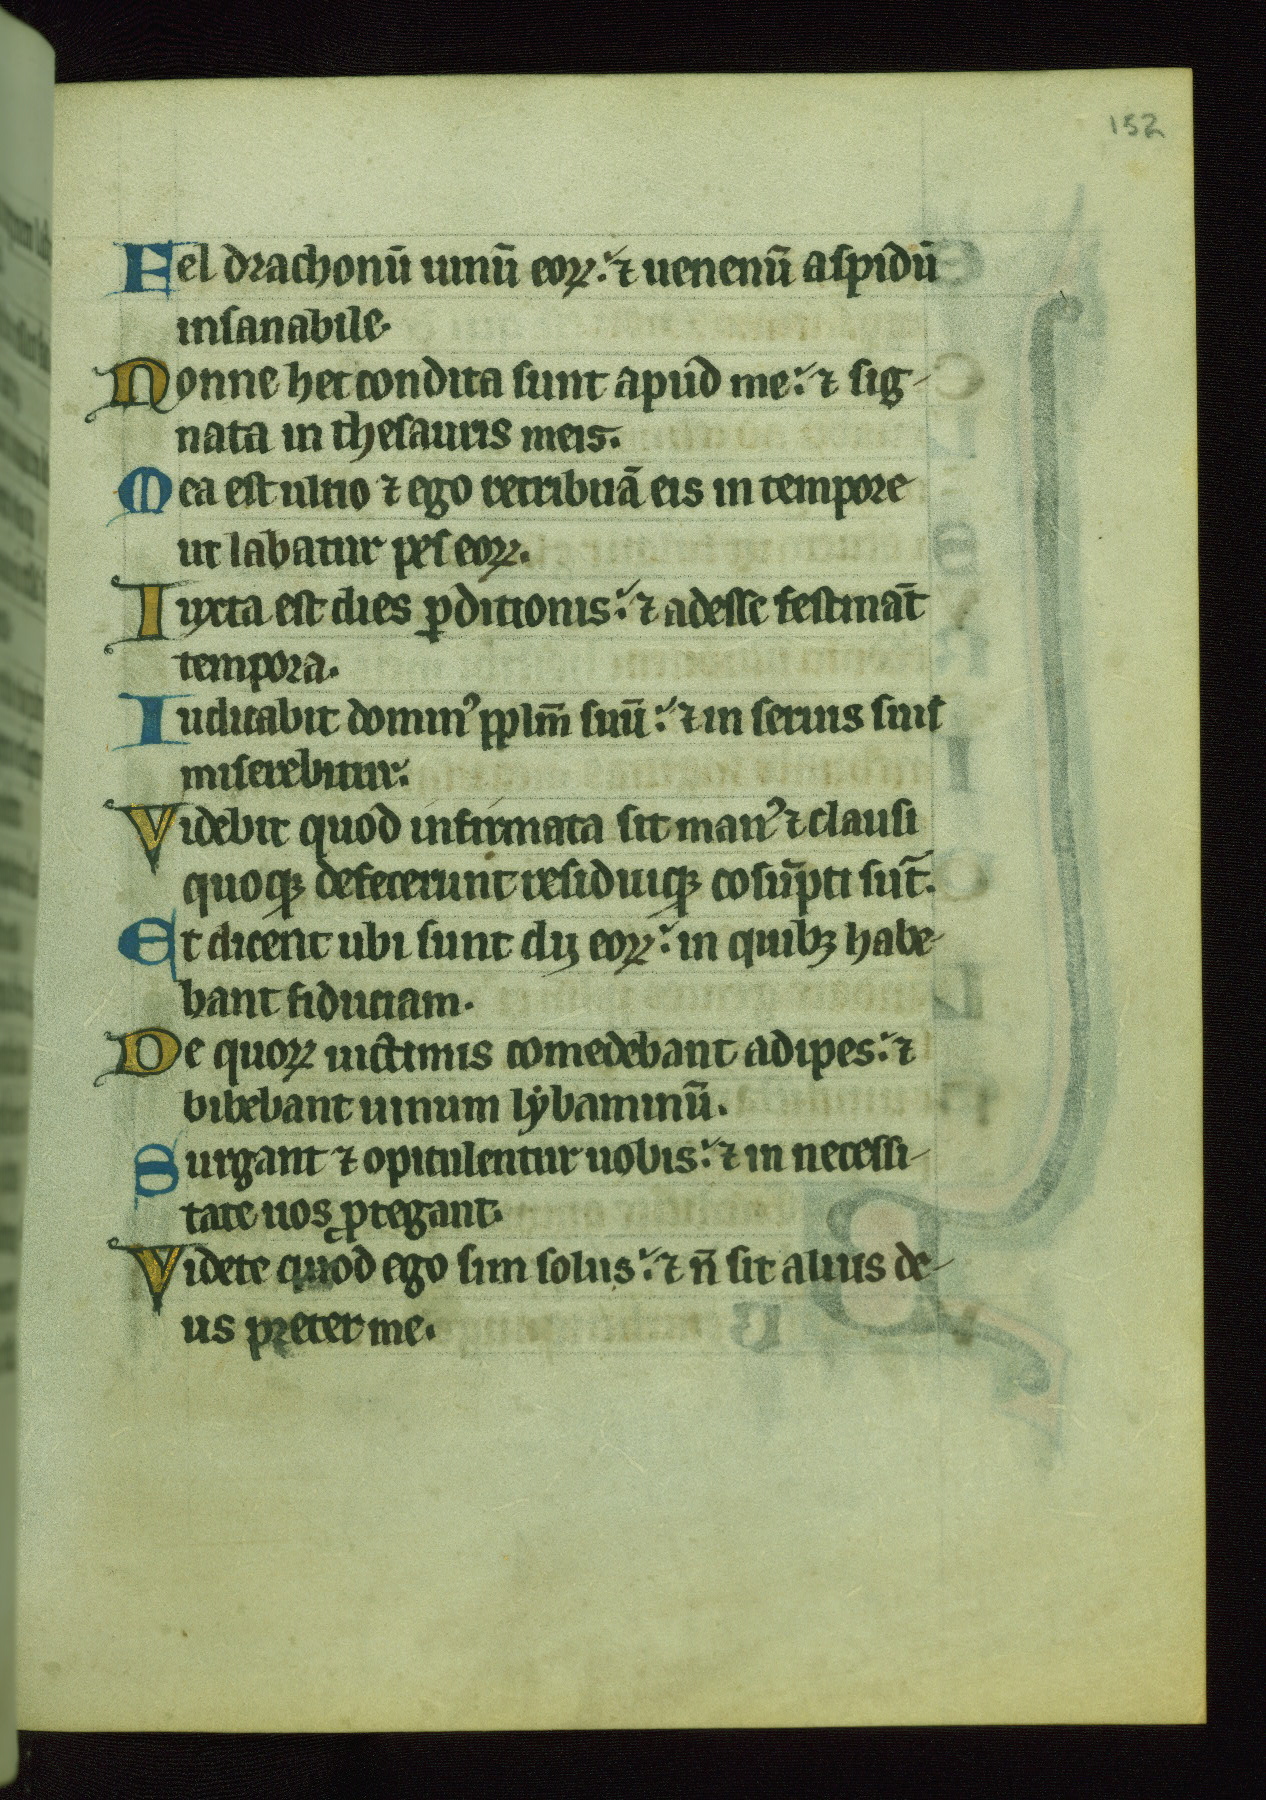 152
Fel drachonū uinū eoꝝ: ⁊ uenenū aspidū
insanabile.
Nonne hec condita sunt apud me: ⁊ sig-
nata in thesauris meis.
Mea est ultio ⁊ ego retribuā eis in tempore
ut labatur pes eoꝝ.
Iuxta est dies ꝑditionis: ⁊ adesse festināt
tempora.
Iudicabit dominꝰ pplm̄ suū: ⁊ in seruis suis
miserebitur.
Videbit quod infirmata sit manꝰ ⁊ clausi
quoqꝫ defecerunt residuiqꝫ cosūpti sūt.
Et dicent ubi sunt dij eoꝝ: in quibꝫ habe-
bant fiduciam.
De quoꝝ uictimis comedebant adipes: ⁊
bibebant uinum lẏbaminū.
Surgant ⁊ opitulentur uobis: ⁊ in necessi-
tate uos ꝓtegant.
Videte quod ego sim solus: ⁊ n̄ sit alius de-
us preter me.